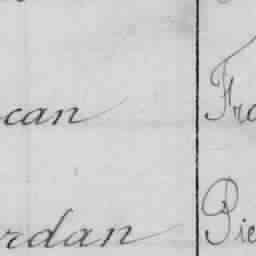 can Fra
rdan Pie